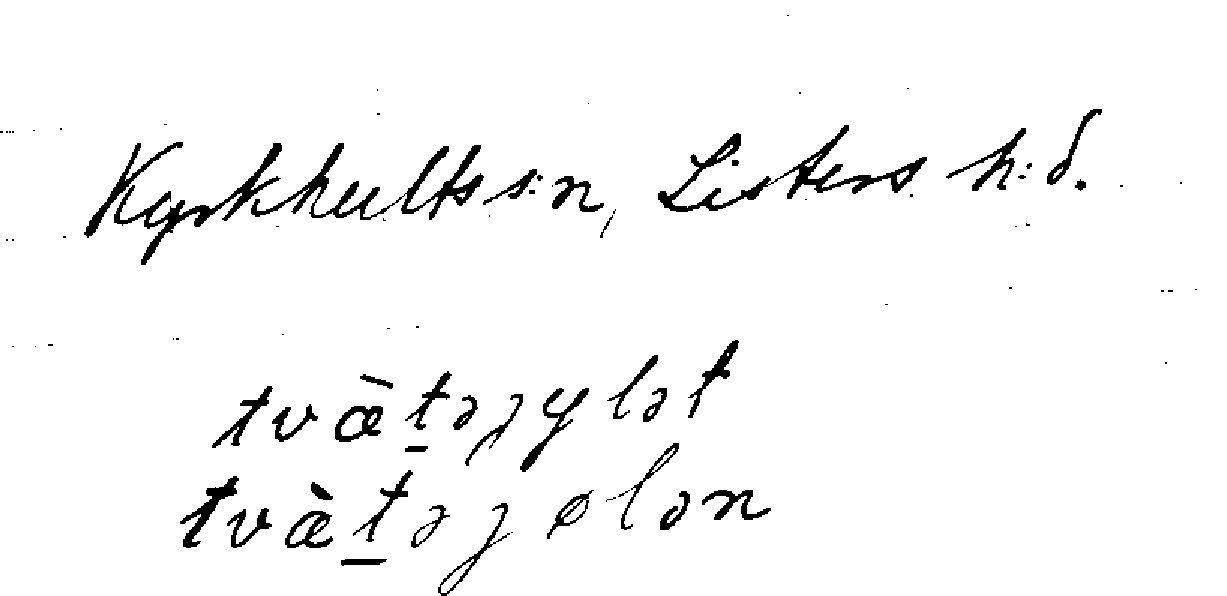 Kyrkhults s:n, Listers h:d.
tvæ̀t̲əȷylət
tvæ̀t̲əȷølən